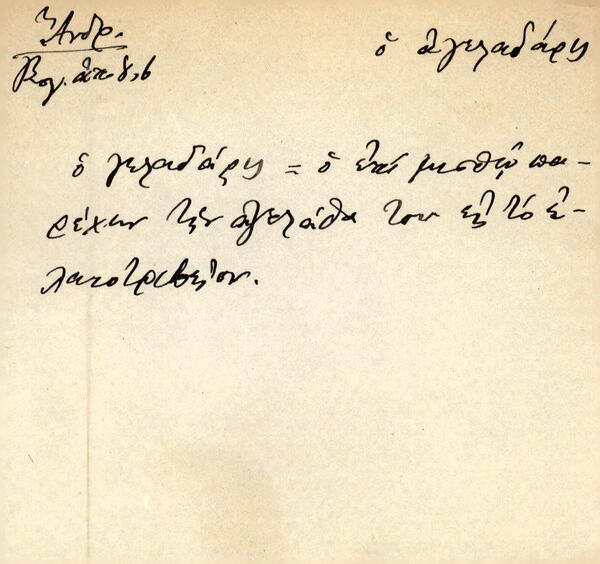 Ἄνδρ.
ὁ ἀγελαδάρης
ὁ γελαδάρης = ὁ ἐπί μισθῷ πα-
ρέχων τήν ἀγελάδα του εἰς τό ἐ-
λαιοτριβεῖον.